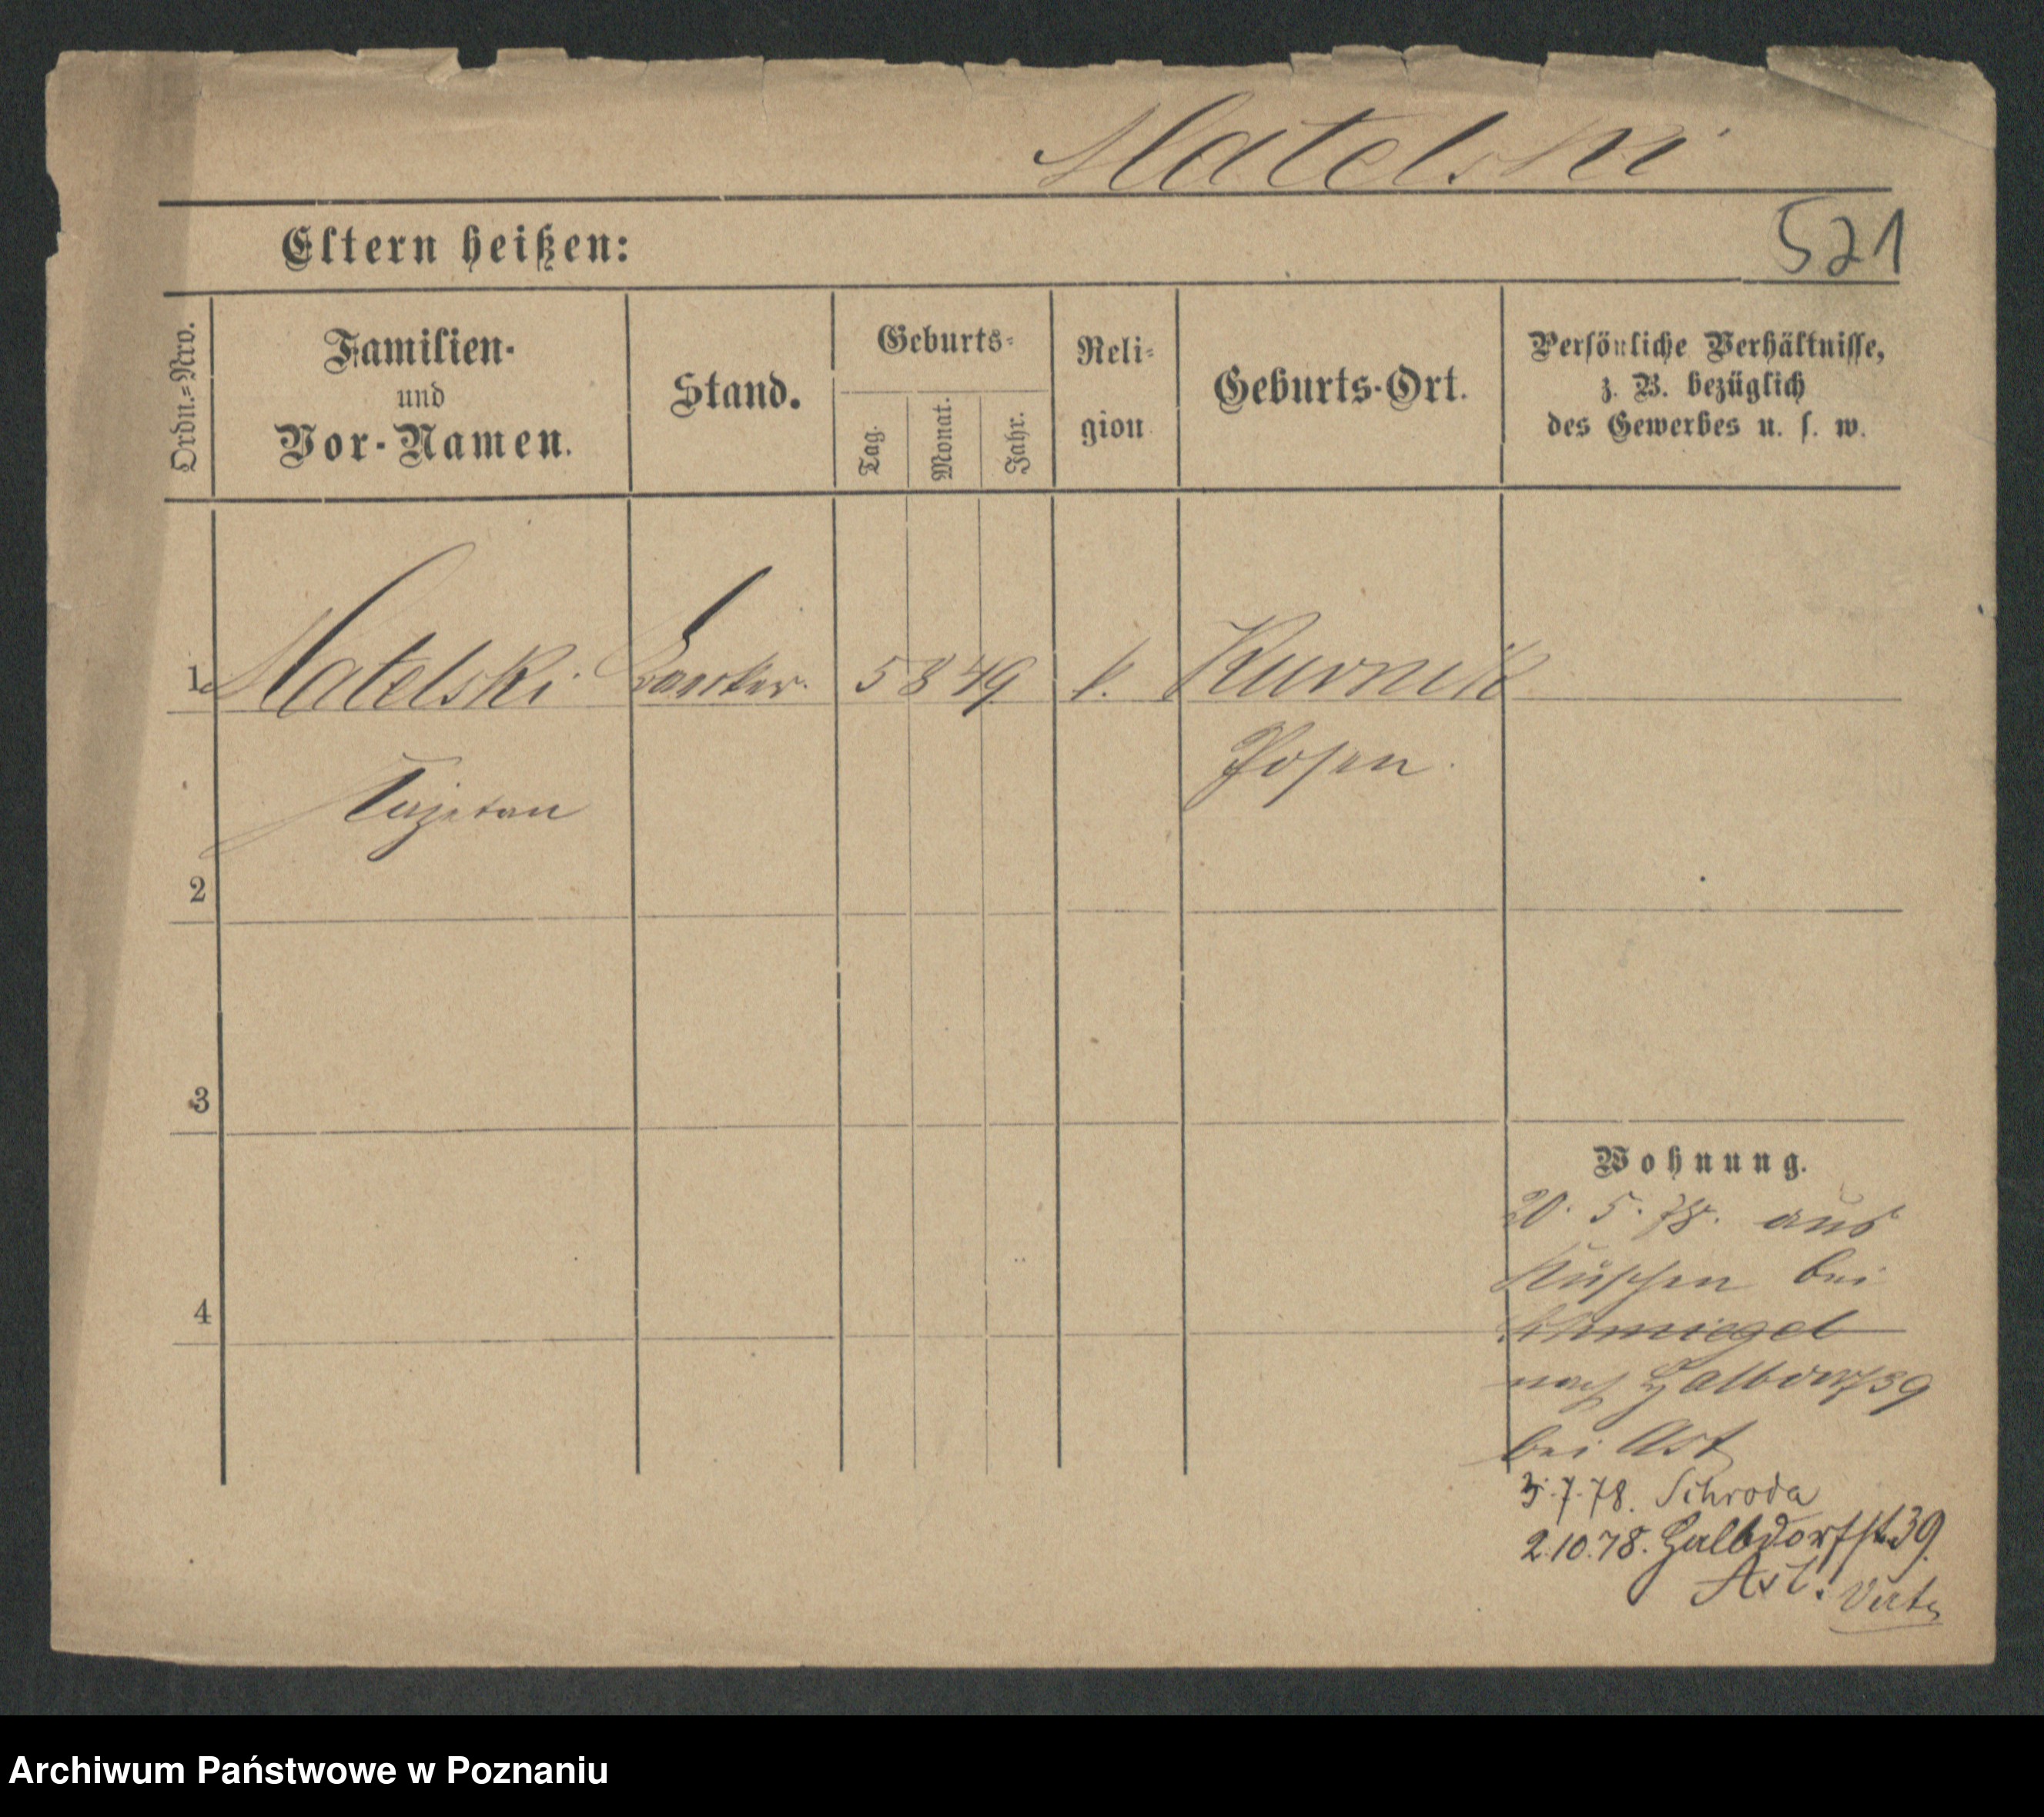 Matelski
521
Eltern heißen:
Ordn.=Nro.
Familien-
und
Vor-Namen.
Stand.
Geburts=
Tag.
Monat.
Jahr.
Reli=
gion
Geburts-Ort.
Persönliche Verhältnisse,
z. B. bezüglich
des Gewerbes u. s. w.
1. Matelski 5 8 49 k. Kurnik
Kajetan
Posen.
2
3
4
Wohnung.
20. 5. 78. aus
Kuschen bei
Schmiegel
nach Halbdorf 39
bei Ast
3.7.78. Schroda
2.10.78. Halbdorfst. 39.
Ast.
Archiwum Państwowe w Poznaniu